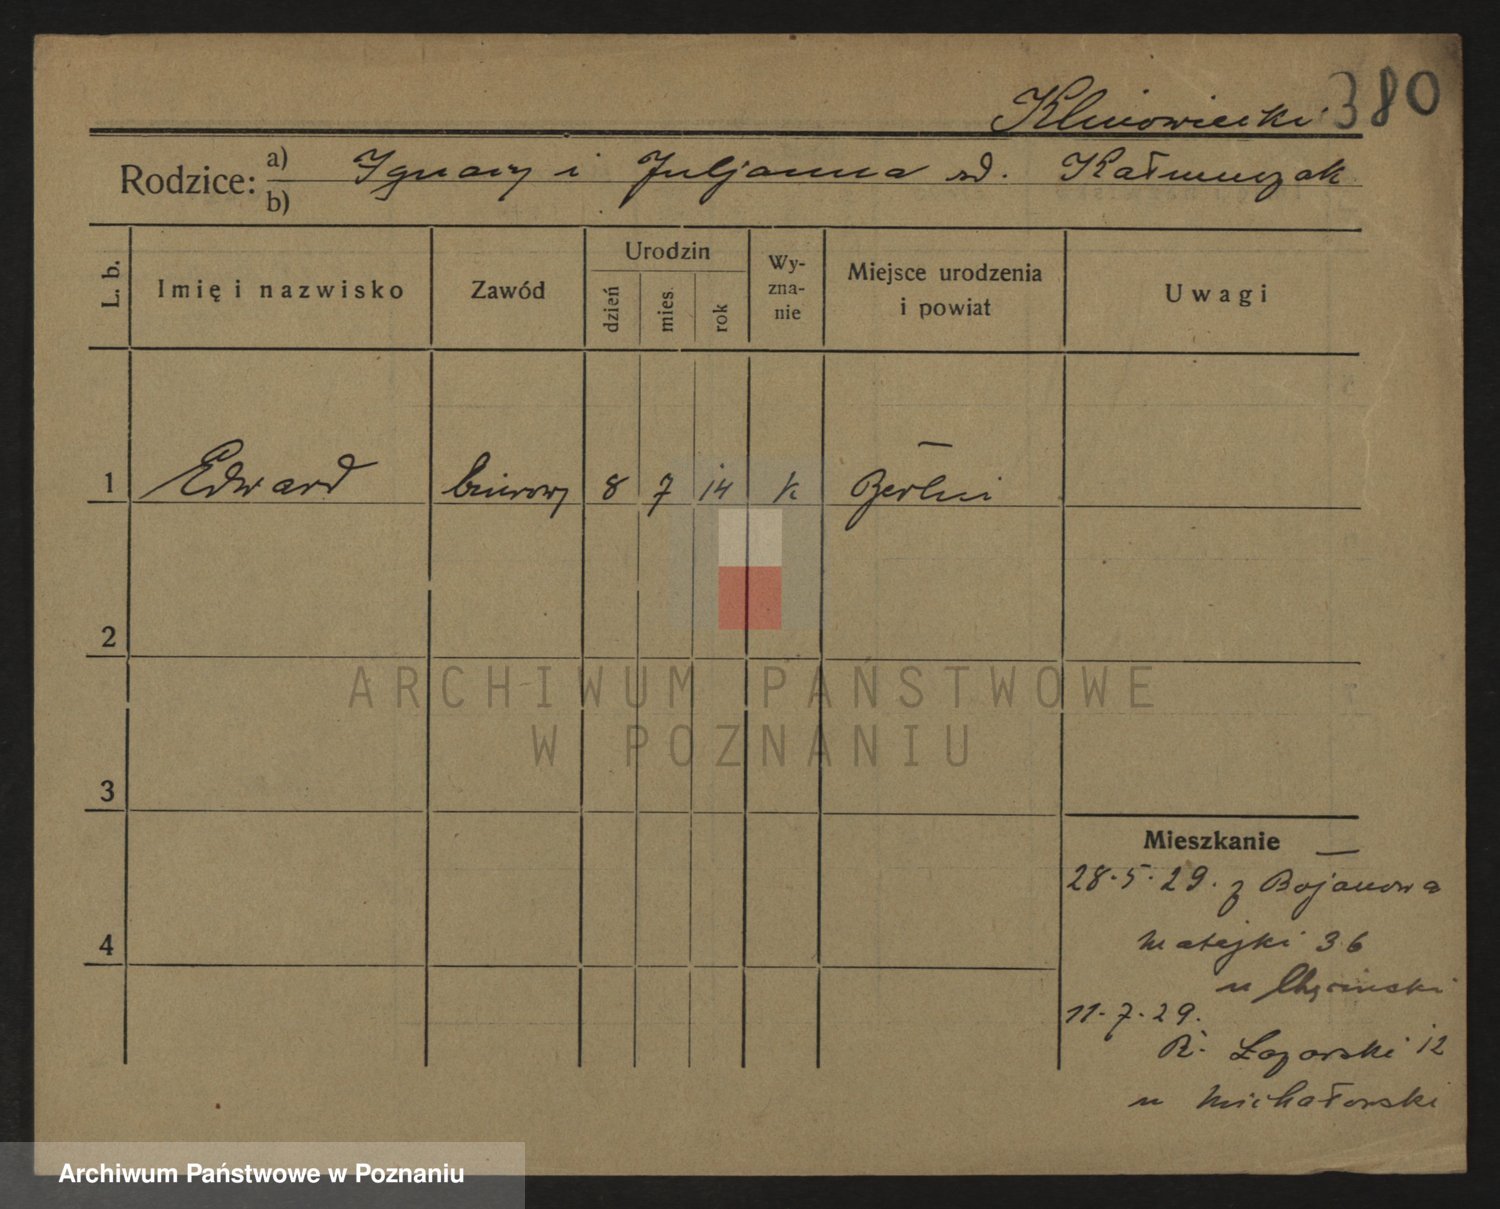 380
Klinowiecki
Rodzice: a) Ignacy i Juljanna zd. Kałmuczak
b)
L. b. Imię i nazwisko Zawód Urodzin dzień mies. rok Wy-zna-nie Miejsce urodzenia i powiat Uwagi
1 Edward biurowy 8 7 14 k Berlin
2
ARCHIWUM PAŃSTWOWE
W POZNANIU
3
Mieszkanie
28.5.29. z Bojanowa
4
Matejki 36
u Chęcinski
11.7.29.
R. Łazarski 12
u Michałowski
Archiwum Państwowe w Poznaniu